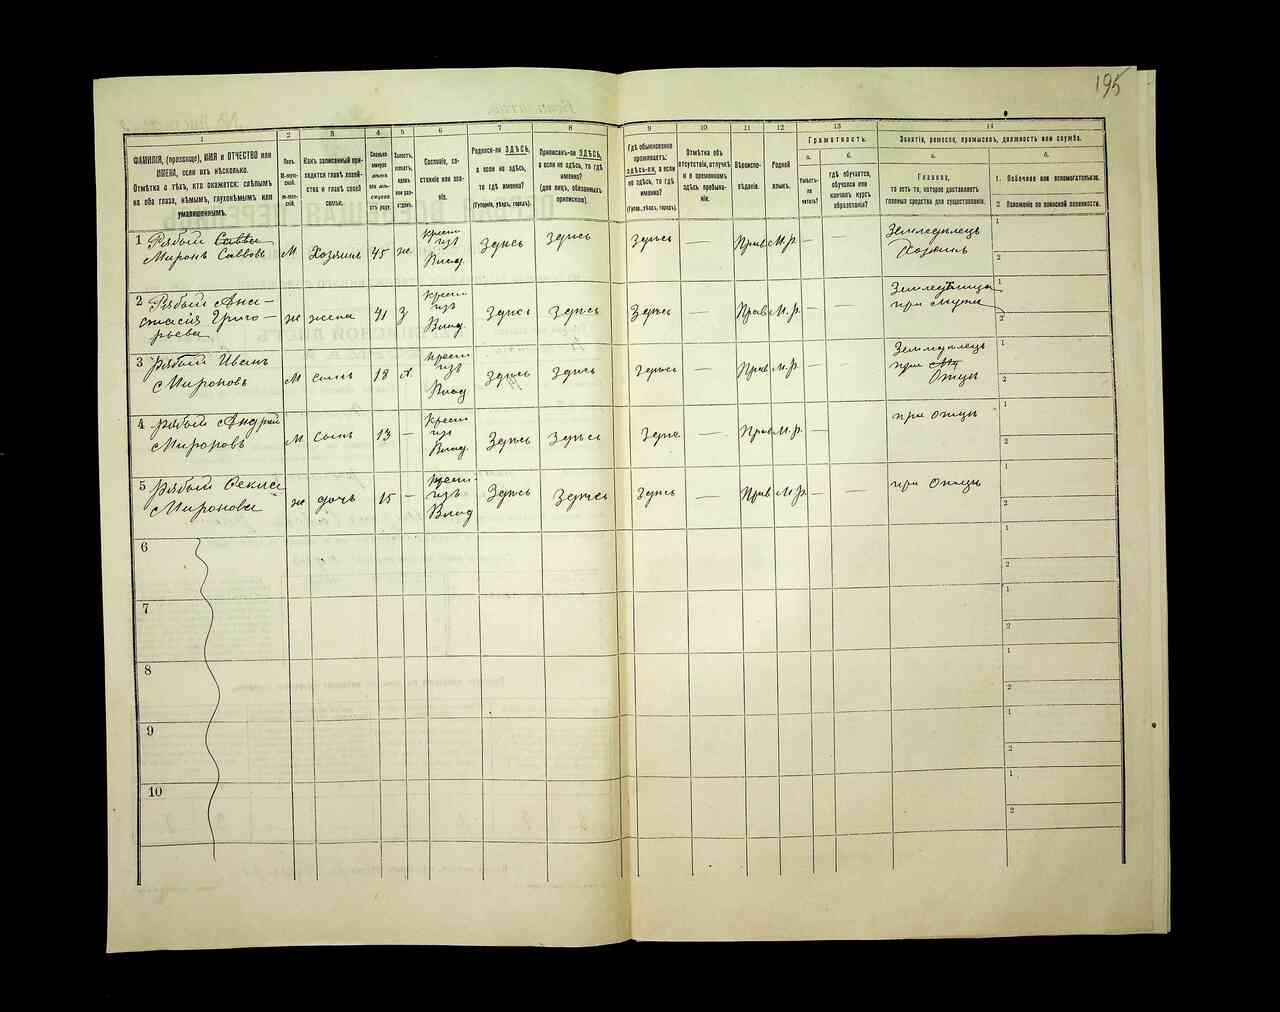 195
1
2
3
4
5
6
7
8
9
10
11
12
13
14
ФАМИЛІЯ, (прозвище), ИМЯ и ОТЧЕСТВО или
ИМЕНА, если ихъ нѣсколько.
Отмѣтка о тѣхъ, кто окажется: слѣпымъ
на оба глаза, нѣмымъ, глухонѣмымъ или
умалишеннымъ.
Полъ.
М-мужской.
Ж-женскій.
Какъ записанный приходится
главѣ хозяйства и главѣ своей
семьи.
Сколько минуло лѣтъ или мѣсяцевъ отъ роду.
Холостъ, женатъ, вдовъ или разведенъ.
Сословіе, состояніе или званіе.
Родился-ли ЗДѢСЬ,
а если не здѣсь,
то гдѣ именно?
(Губернія, уѣздъ, городъ).
Приписанъ-ли ЗДѢСЬ,
а если не здѣсь, то гдѣ
именно?
(для лицъ, обязанныхъ
припискою).
Гдѣ обыкновенно
проживаетъ:
здѣсь-ли, а если
не здѣсь, то гдѣ
именно?
(Губерн., уѣздъ, городъ).
Отмѣтка объ
отсутствіи, отлучкѣ
и о временномъ
здѣсь пребываніи.
Вѣроисповѣданіе.
Родной языкъ.
Грамотность.
а.
б.
Умѣетъ-ли читать?
гдѣ обучается,
обучался или
кончилъ курсъ
образованія?
Занятія, ремесло, промыселъ, должность или служба.
а.
б.
Главное,
то есть то, которое доставляетъ
главныя средства для существованія.
1. Побочное или вспомогательное.
2 Положеніе по воинской повинности.
1 Рябый Савва
Миронъ Саввовъ М Хозяинъ 45 ж Крест. изъ Влад. Здѣсь Здѣсь Здѣсь — Прав М.р. — — Земледѣлецъ Хозяинъ 1 2
2 Рябый Ана-
стасія Григо-
рьева ж жена 41 З Крест. изъ Влад. Здѣсь Здѣсь Здѣсь — Прав М.р. — — при мужѣ 1 2
3 Рябый Иванъ
Мироновъ М сынъ 18 х Крест. изъ Влад Здѣсь Здѣсь Здѣсь — Прав М.р. — — Земледѣлецъ при Отцѣ 1 2
4 Рябый Андрей
Мироновъ М Сынъ 13 — Крест. изъ Влад. Здѣсь Здѣсь Здѣсь — Прав М.р. — при отцѣ 1 2
5 Рябый Фекла
Миронова ж дочь 15 — Крест. изъ Влад Здѣсь Здѣсь Здѣсь — Прав М.р. — — при Отцѣ 1 2
6 1 2
7 1 2
8 1 2
9 1 2
10 1 2